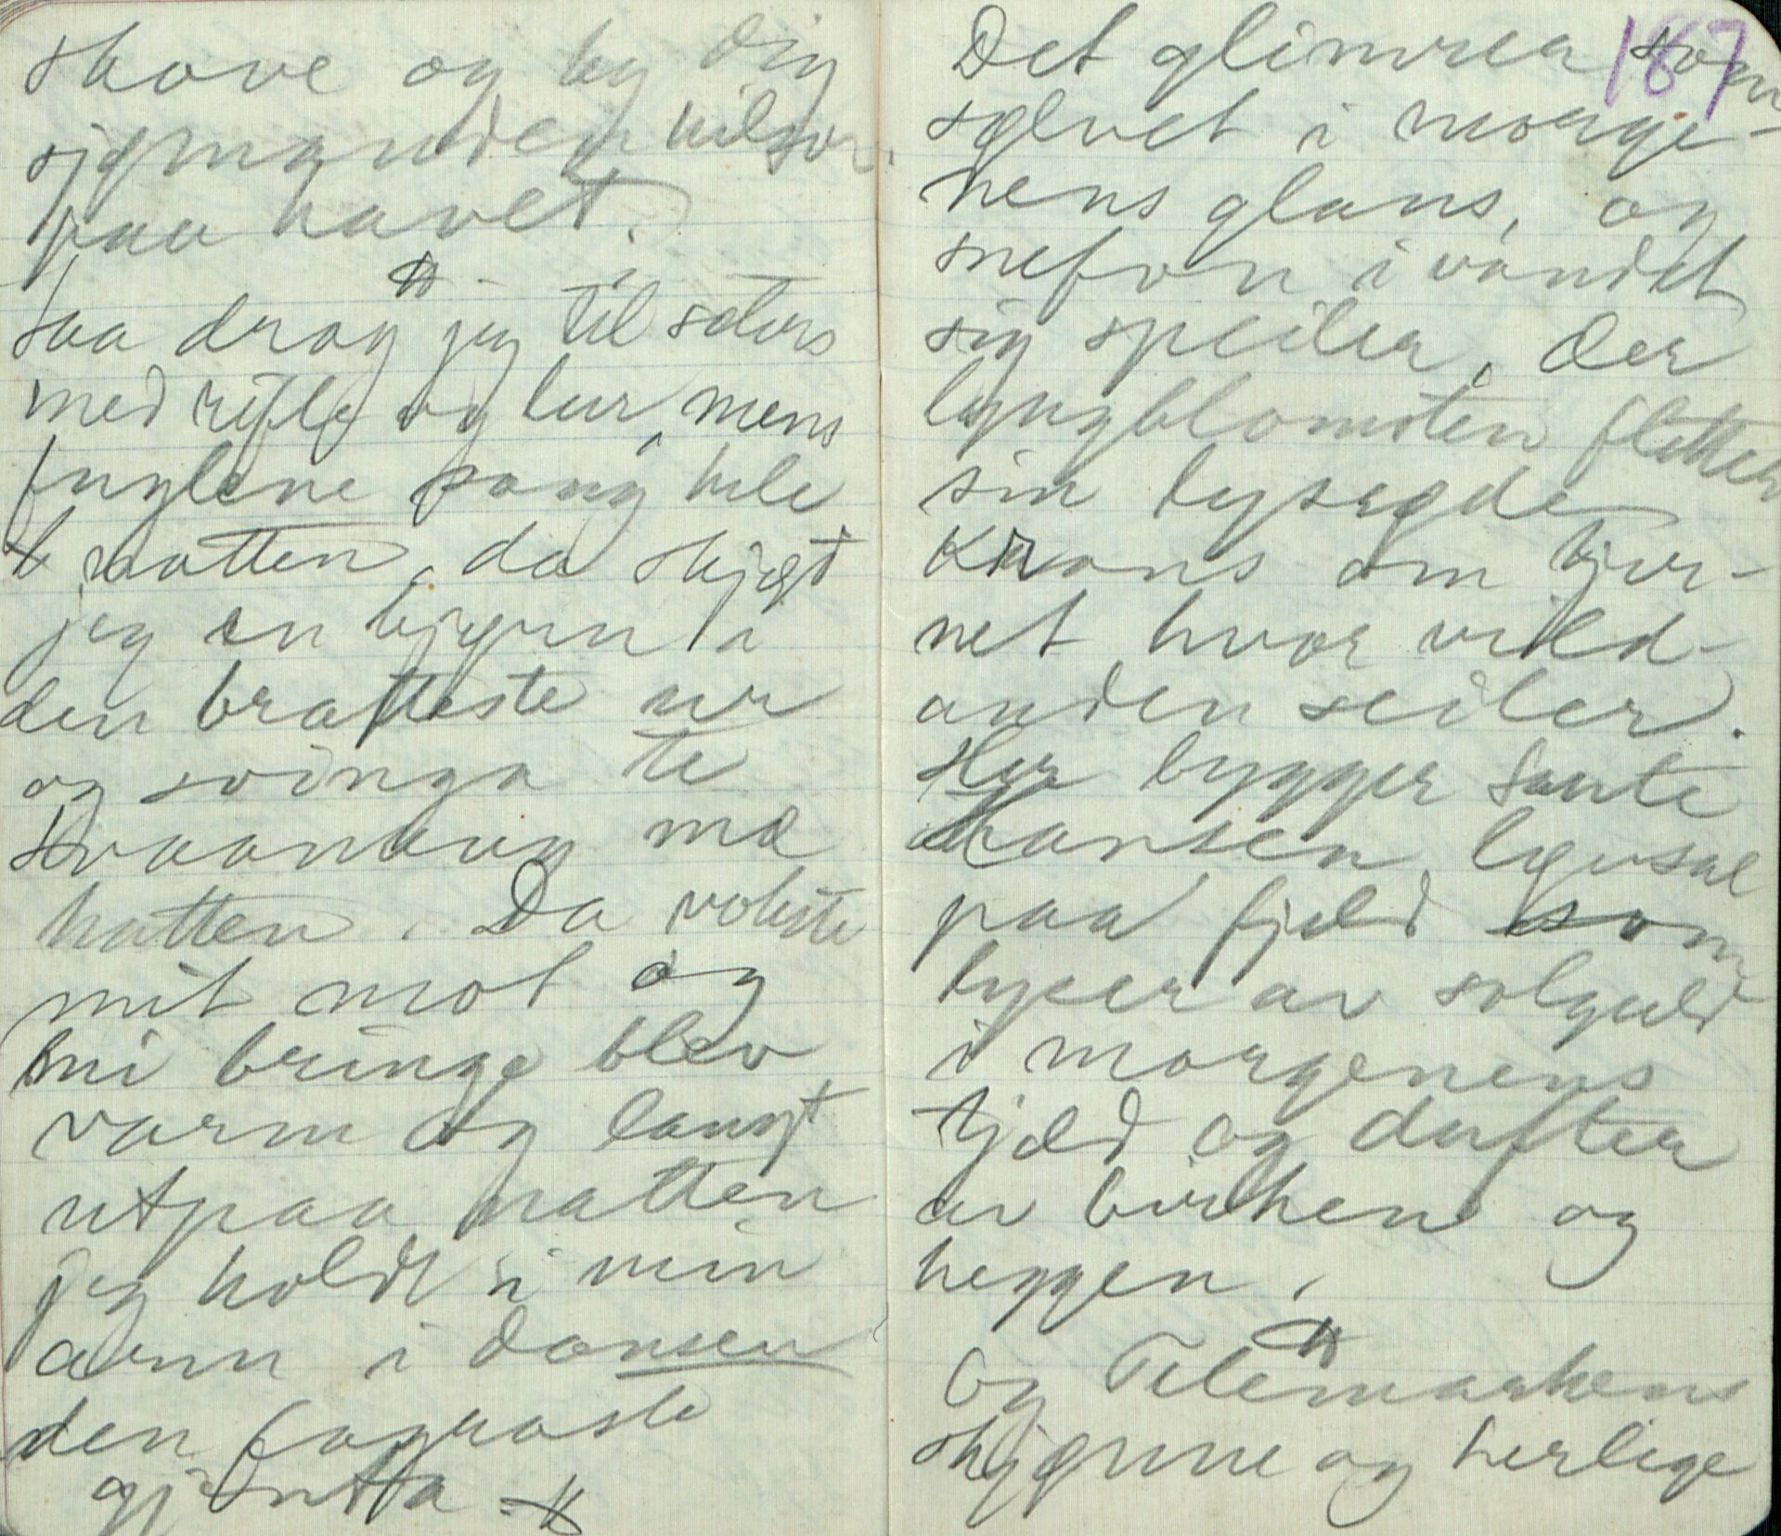 skove og by dig
sjømanden hilser
paa havet.
#
Saa drog jeg til sæters
med rifle og lur, mens
fuglene sang hele
natten, da skjøt
jeg en bjørn i
den bratteste ur
og svinga te
Svaanaug mæ
hatten. Da vokste
mit mot og
mi bringe blev
varm og langt
utpaa natten
jeg holdt i min
arm i dansen
den fagraste
gjenta #
187
Det glimrer som
sølvet i morge-
nens glans, og
snefon i vandet
sig speiler, der
lyngblomsten fletter
sin lysrøde
krans om tjer-
net hvor vild-
anden seiler.
Her bygger Sante
Hansen løvsal
paa fjeld som
lyser av solguld
i morgenens
tjeld og dufter
av birken og
heggen.
#
Og Telemarkens
skjønne og herlige